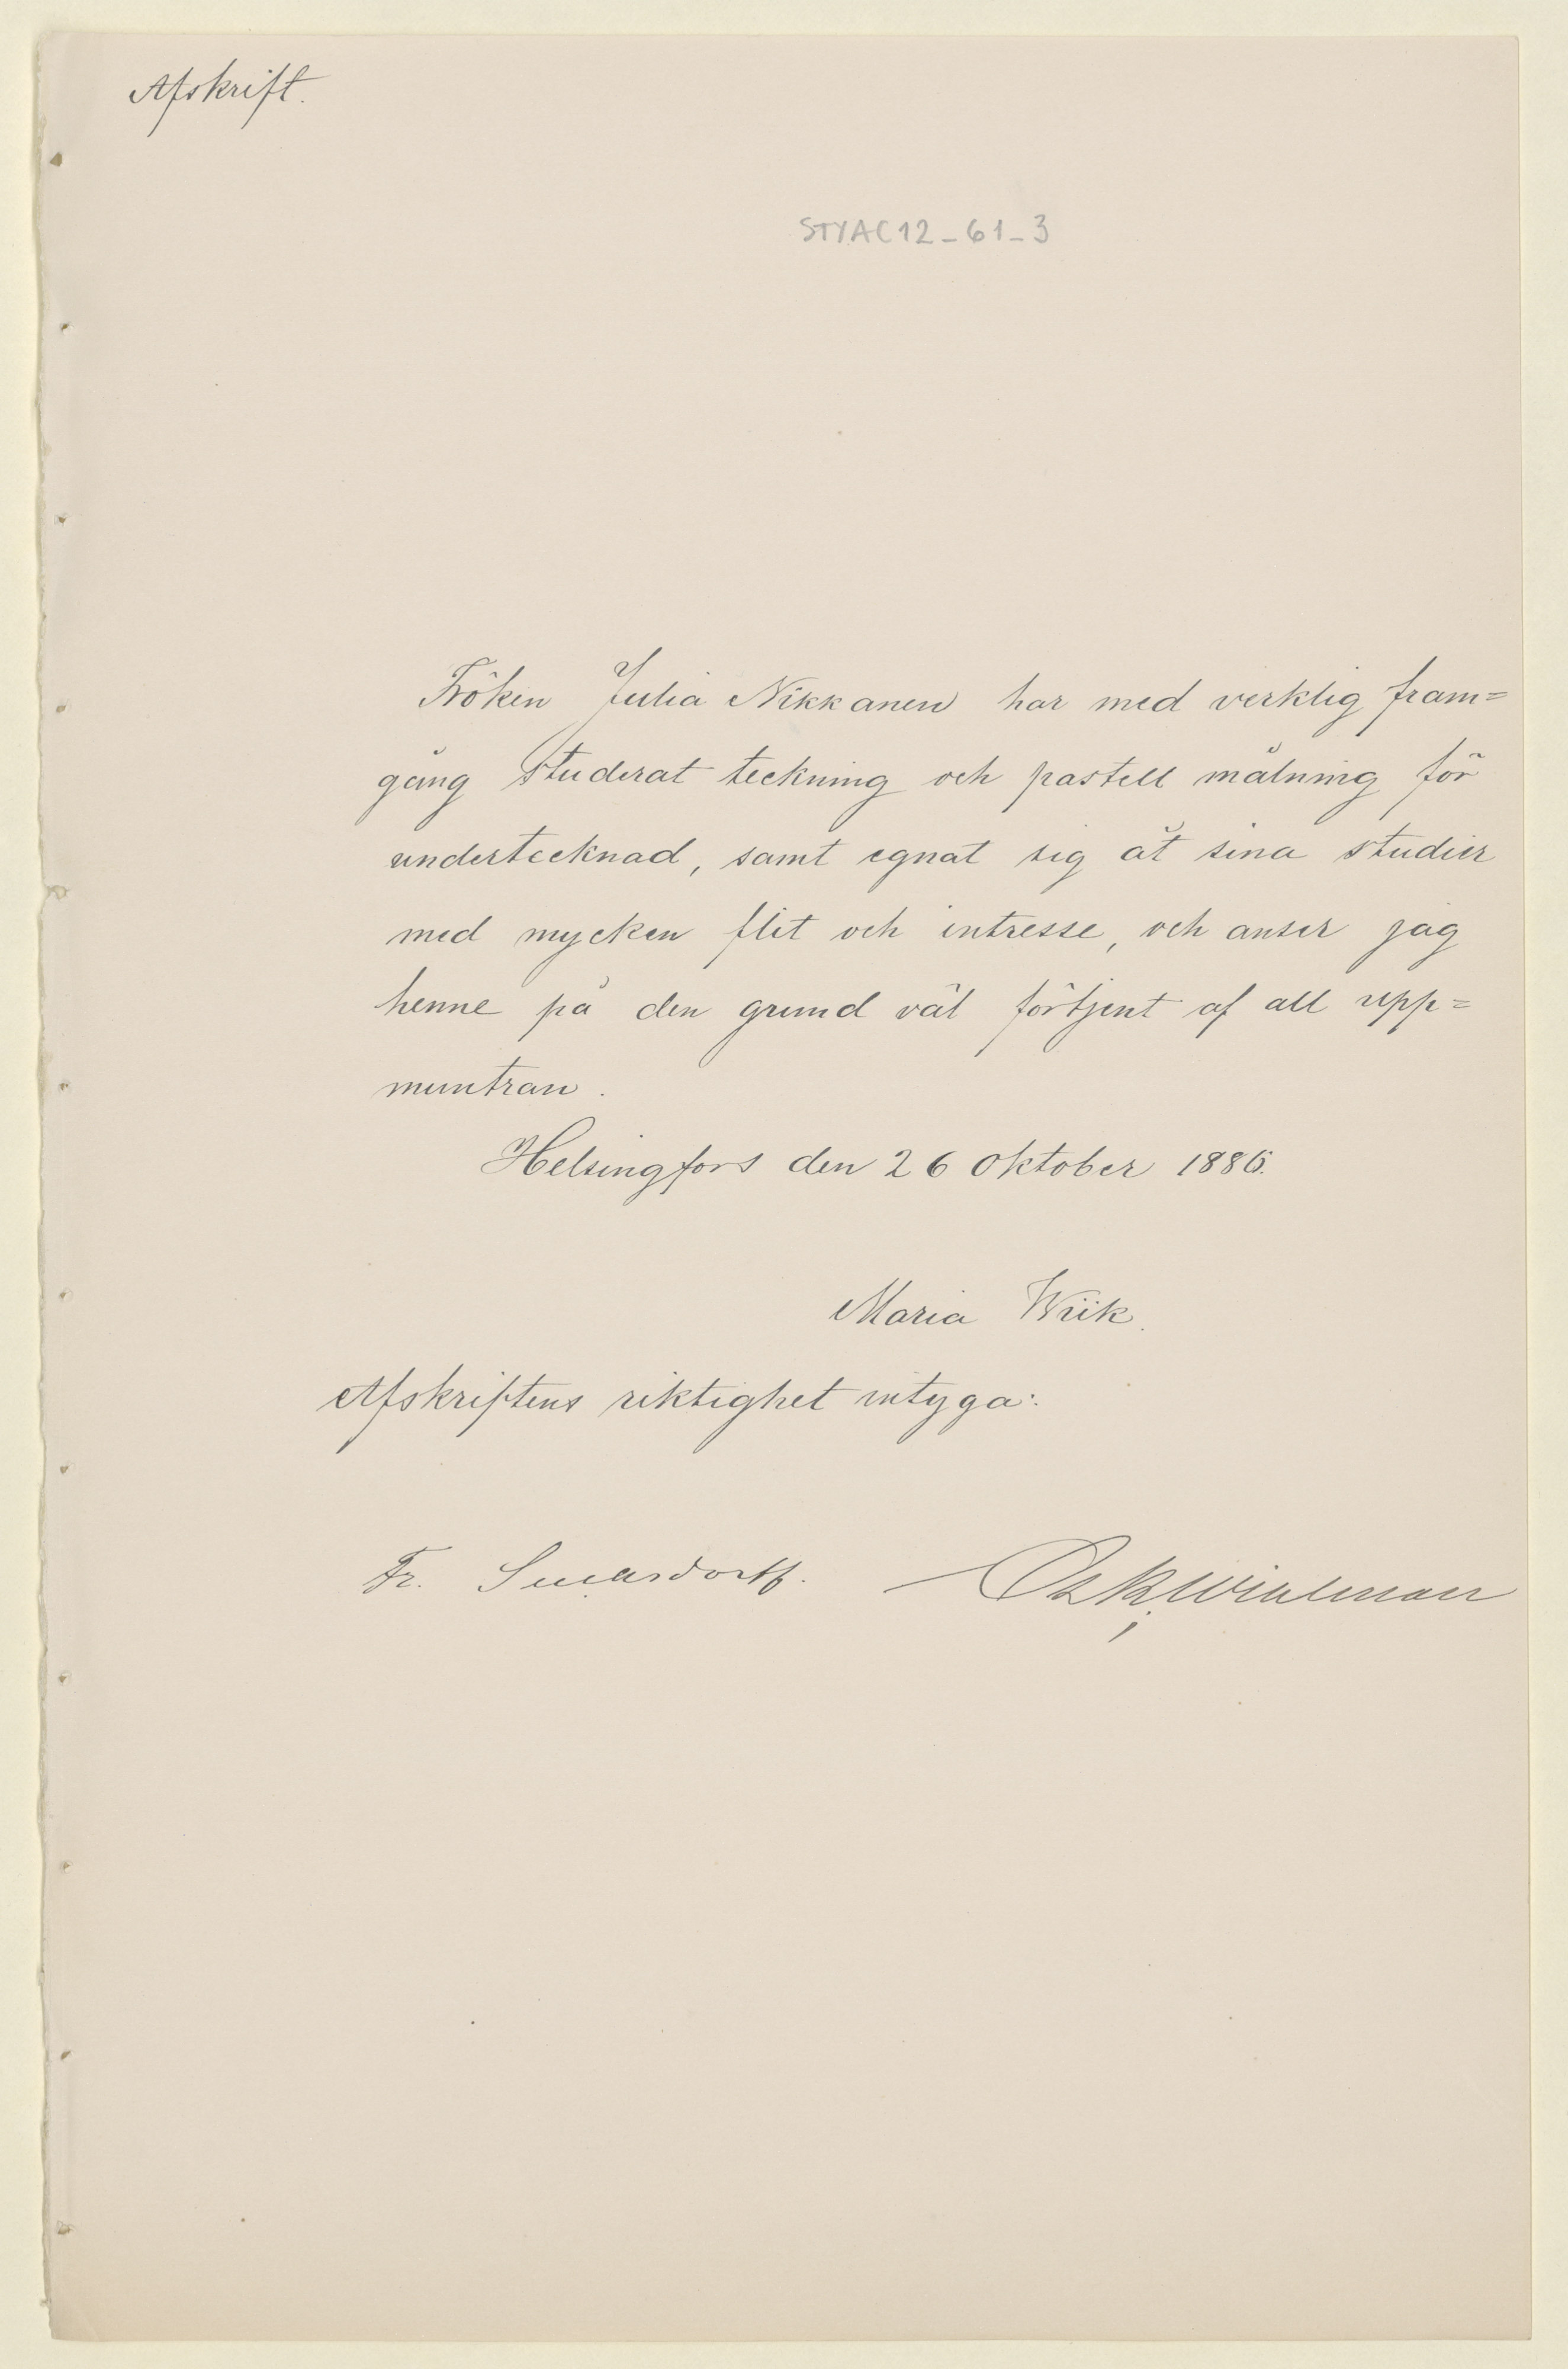 Afskrift.
STYAC12_61_3
Fröken Julia Nikkanen har med verklig fram=
gång studerat teckning och pastell målning för
undertecknad, samt egnat sig åt sina studier
med mycken flit och intresse, och anser jag
henne på den grund väl förtjent af all upp=
muntran.
Helsingfors den 26 Oktober 1886.
Maria Wiik.
Afskriftens riktighet intyga:
Fr.